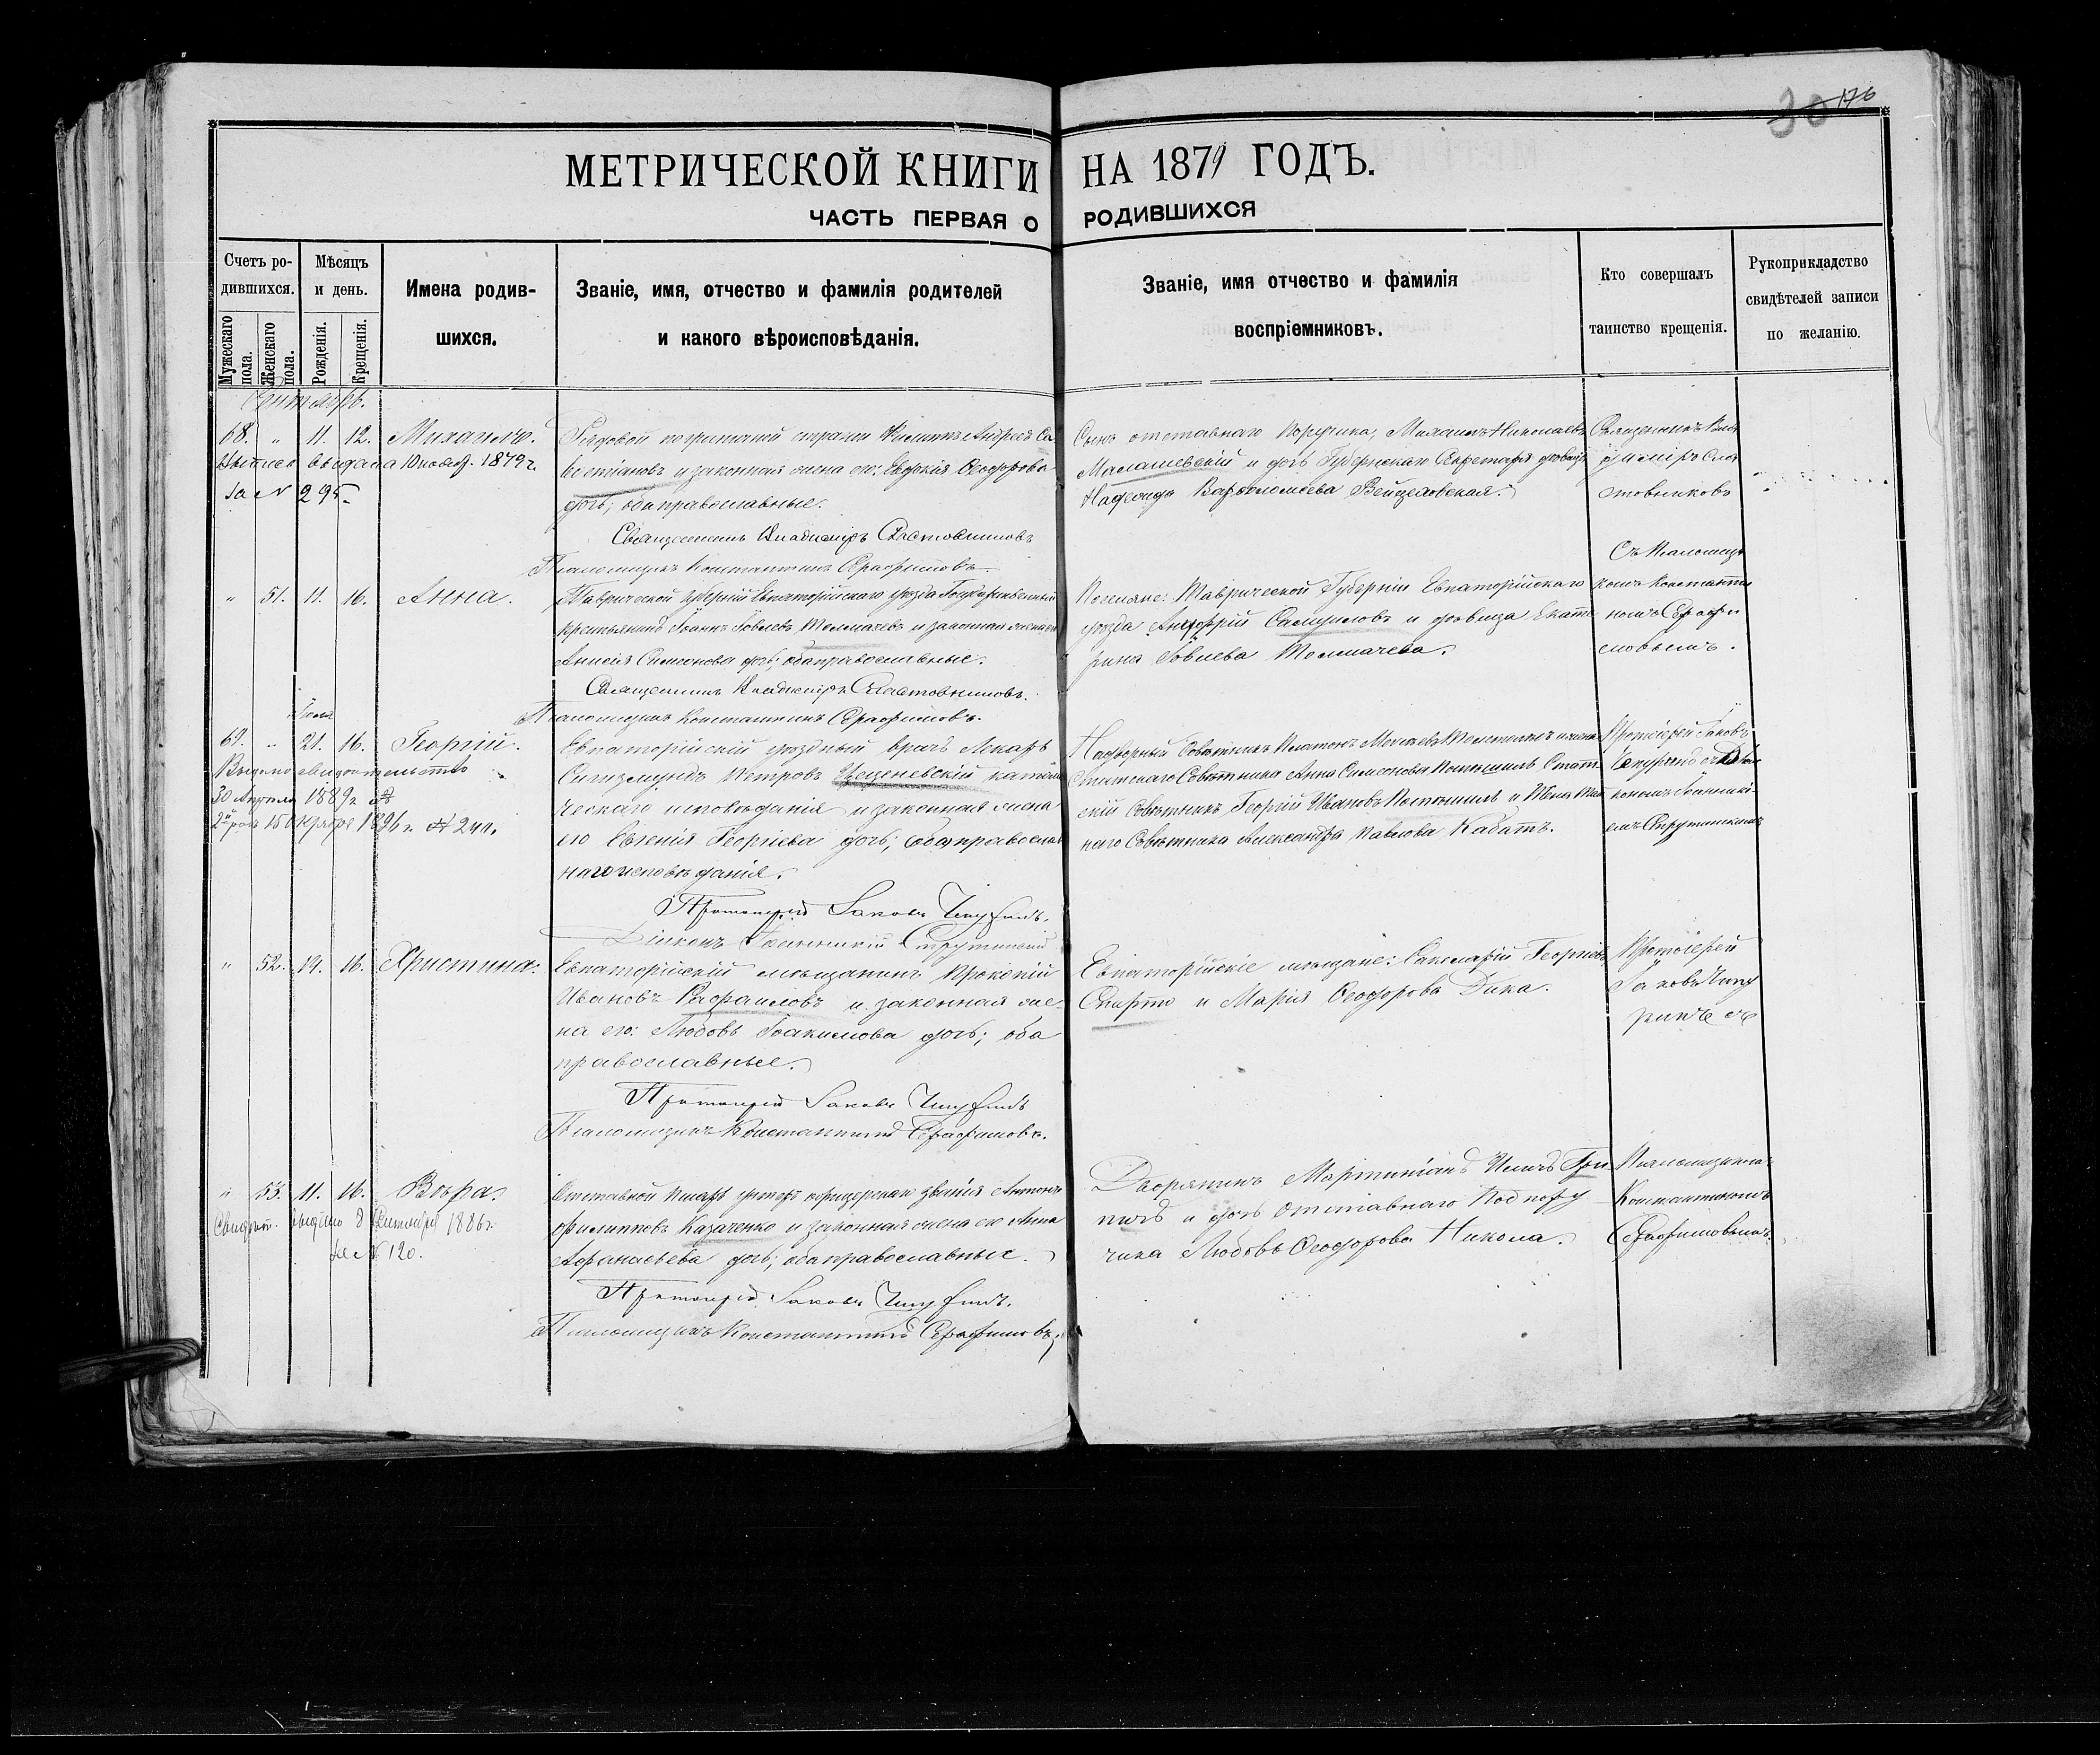 30 176
МЕТРИЧЕСКОЙ КНИГИ НА 1879 ГОДЪ.
ЧАСТЬ ПЕРВАЯ О РОДИВШИХСЯ
Счетъ ро-
дившихся.
Мужескаго пола.
Женскаго пола.
Мѣсяцъ
и день.
Рожденія.
Крещенія.
Имена родив-
шихся.
Званіе, имя, отчество и фамилія родителей
и какого вѣроисповѣданія.
Званіе, имя отчество и фамилія
воспріемниковъ.
Кто совершалъ
таинство крещенія.
Рукоприкладство
свидѣтелей записи
по желанію.
68. " 11. 12. Михаилъ.
выдана 1879 г.
за № 295
Рядовой пограничной стражи Филиппъ Андреевъ Са
востіановъ и законная жена его: Евдокія Ѳеодорова
дочь; оба православные.
Священникъ Владиміръ Сластовниковъ
Псаломщикъ Константинъ Серафимовъ.
Сынъ отставнаго Поручика, Михаилъ Николаевъ
Малашевскій и дочь Губернскаго Секретаря дѣвица
Надежда Варѳоломеева
Священникъ Вла
диміръ Сла
стовниковъ
" 51. 11. 16. Анна.
Таврической губерніи Евпаторійскаго уѣзда
крестьянинъ Іоаннъ Іовлевъ Толмачевъ и законная жена его
Анисія Симеонова дочь; оба православные.
Священникъ Владиміръ Сластовниковъ.
Псаломщикъ Константинъ Серафимовъ.
Поселяне: Таврической Губерніи Евпаторійскаго
уѣзда Самуиловъ и дѣвица Екате
рина Іовлева Толмачева.
Съ Псаломщи
комъ Константи
номъ Серафи
мовымъ.
69. " 21. 16. Георгій.
Іюля
Выдано свидѣтельство
30 Апрѣля 1889 г. №
1896 г. №
Евпаторійскій уѣздный врачъ Лекарь
Сигизмундъ Петровъ католи
ческаго исповѣданія и законная жена
его Евгенія Георгіева дочь; православ
наго исповѣданія.
Протоіерей Іаковъ Чепуринъ.
Діаконъ Іоанникій Спрутинскій
Надворный Совѣтникъ Платонъ и жена
Статскаго Совѣтника Анна Симеонова Стат
скій Совѣтникъ Георгій Ивановъ и Жена
наго Совѣтника Александра Павлова Кабатъ.
Протоіерей Іаковъ
Чепуринъ съ Діа
кономъ Іоанники
емъ Спрутинскимъ
" 52. 14. 16. Христина.
Евпаторійскій мѣщанинъ Прокопій
Ивановъ Рафаиловъ и законная же
на его: Любовь Іоакимова дочь; оба
православные.
Протоіерей Іаковъ Чепуринъ
Псаломщикъ Константинъ Серафимовъ.
Евпаторійскіе мѣщане: Георгіевъ
Спирто и Марія Ѳеодорова Дика.
Протоіерей
Іаковъ Чепу
ринъ съ
" 53. 11. 16. Вѣра.
Свидѣт. выдано 8 Сентября 1886 г.
за № 120.
Отставной Писарь унтеръ офицерскаго званія Антонъ
Филипповъ Казаченко и законная жена его Анна
Афанасьева дочь; оба православные.
Протоіерей Іаковъ Чепуринъ.
Псаломщикъ Константинъ Серафимовъ.
Дворянинъ Мартиніанъ
и дочь отставнаго Подпору
чика Любовь Ѳеодорова Никола.
Псаломщикомъ
Константиномъ
Серафимовымъ.